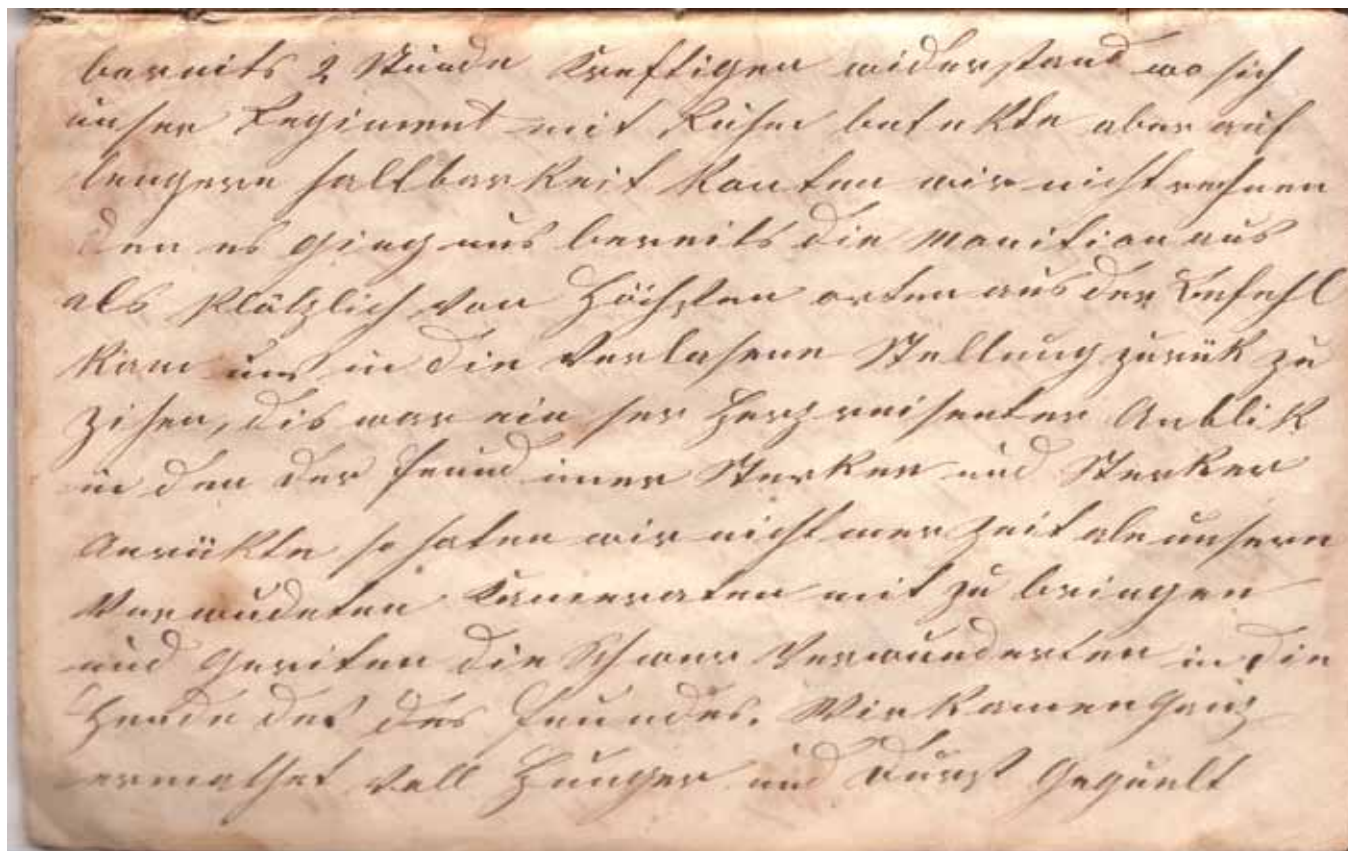 bereits 2 Stunde Kreftigen widerstand wo sich
unser Regiment mit Ruhm betekte aber auf
lengere haltbarkeit konten wir nicht rechnen
den es ging uns bereits die Monition aus
als Plötzlich von Höchsten orten aus der Befehl
kam uns in die Verlasene Stellung zurük zu
zihen, dis war ein ser Herz reisenter Anblik
in den der feund imer Sterker und Sterker
Anrükte so haten wir nicht mer zeit ale unsere
Verwudeten Kameraten mit zu bringen
und Geriten die Schwer Verwunderten in die
Hende des des feundes. Wir kamen Ganz
ermathet voll Hunger und Durst Gequelt